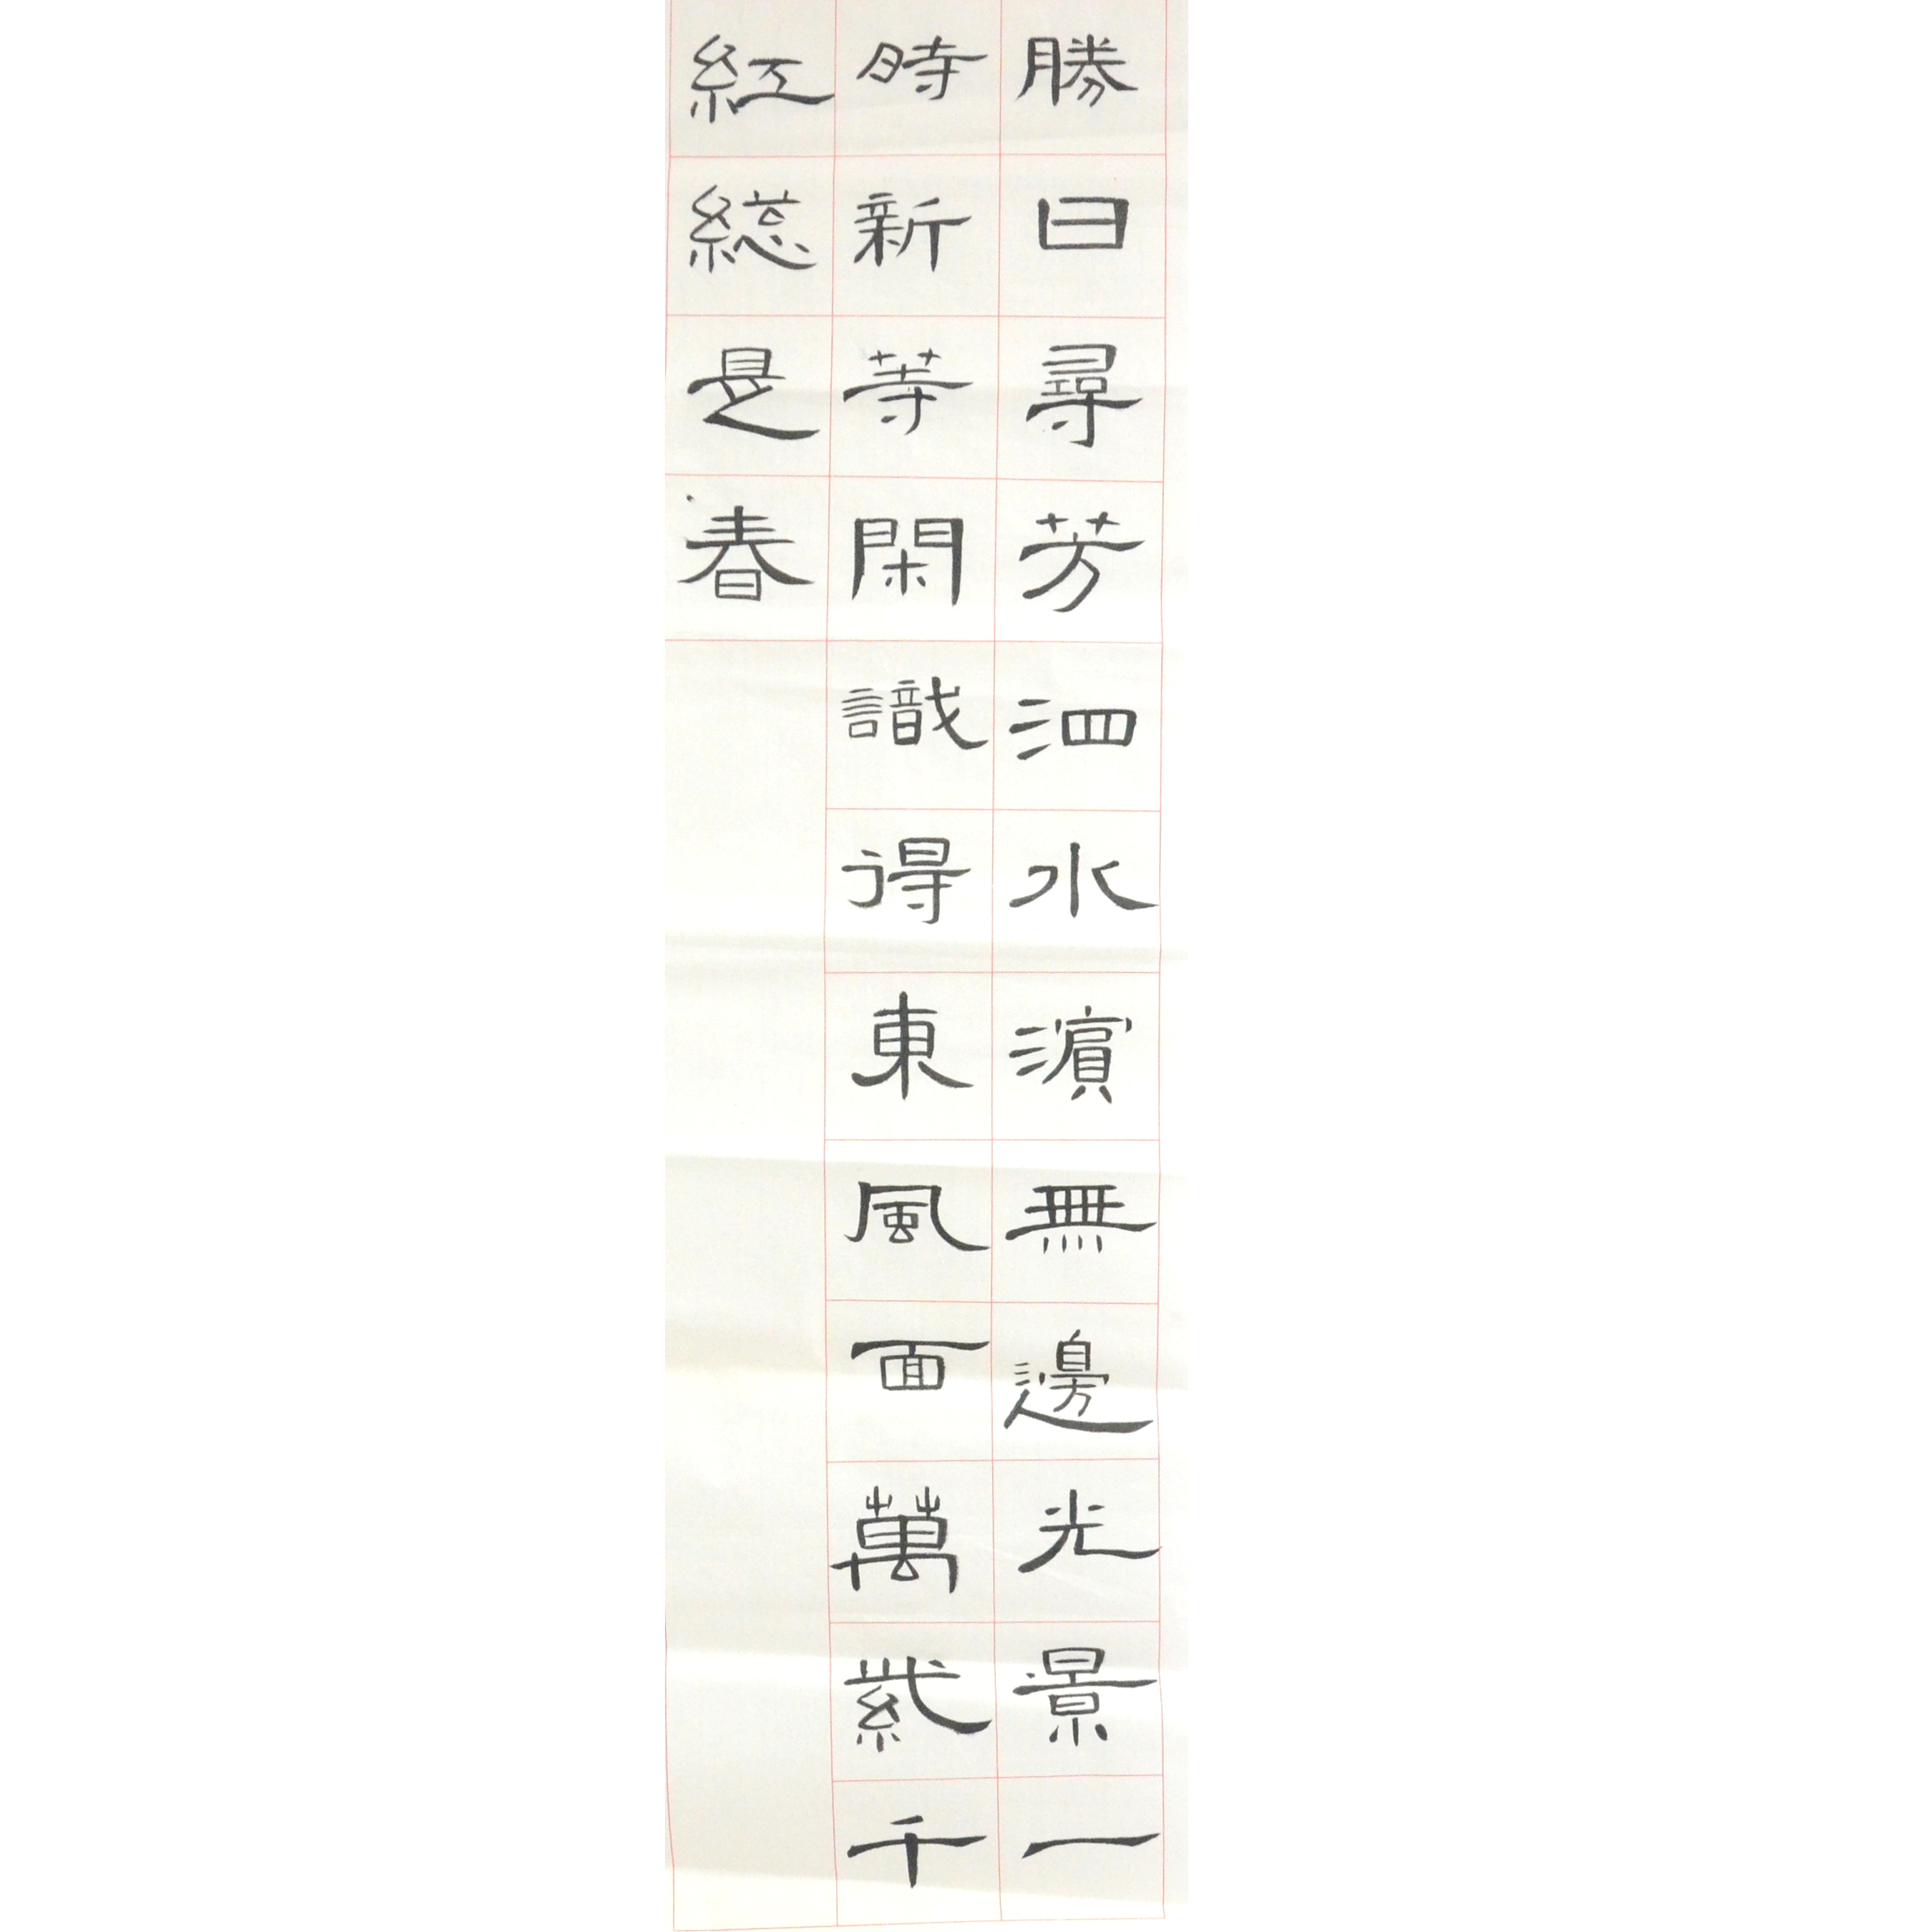 勝日尋芳泗水濵無邊光景一
時新等閑識得東風面萬紫千
紅総是春